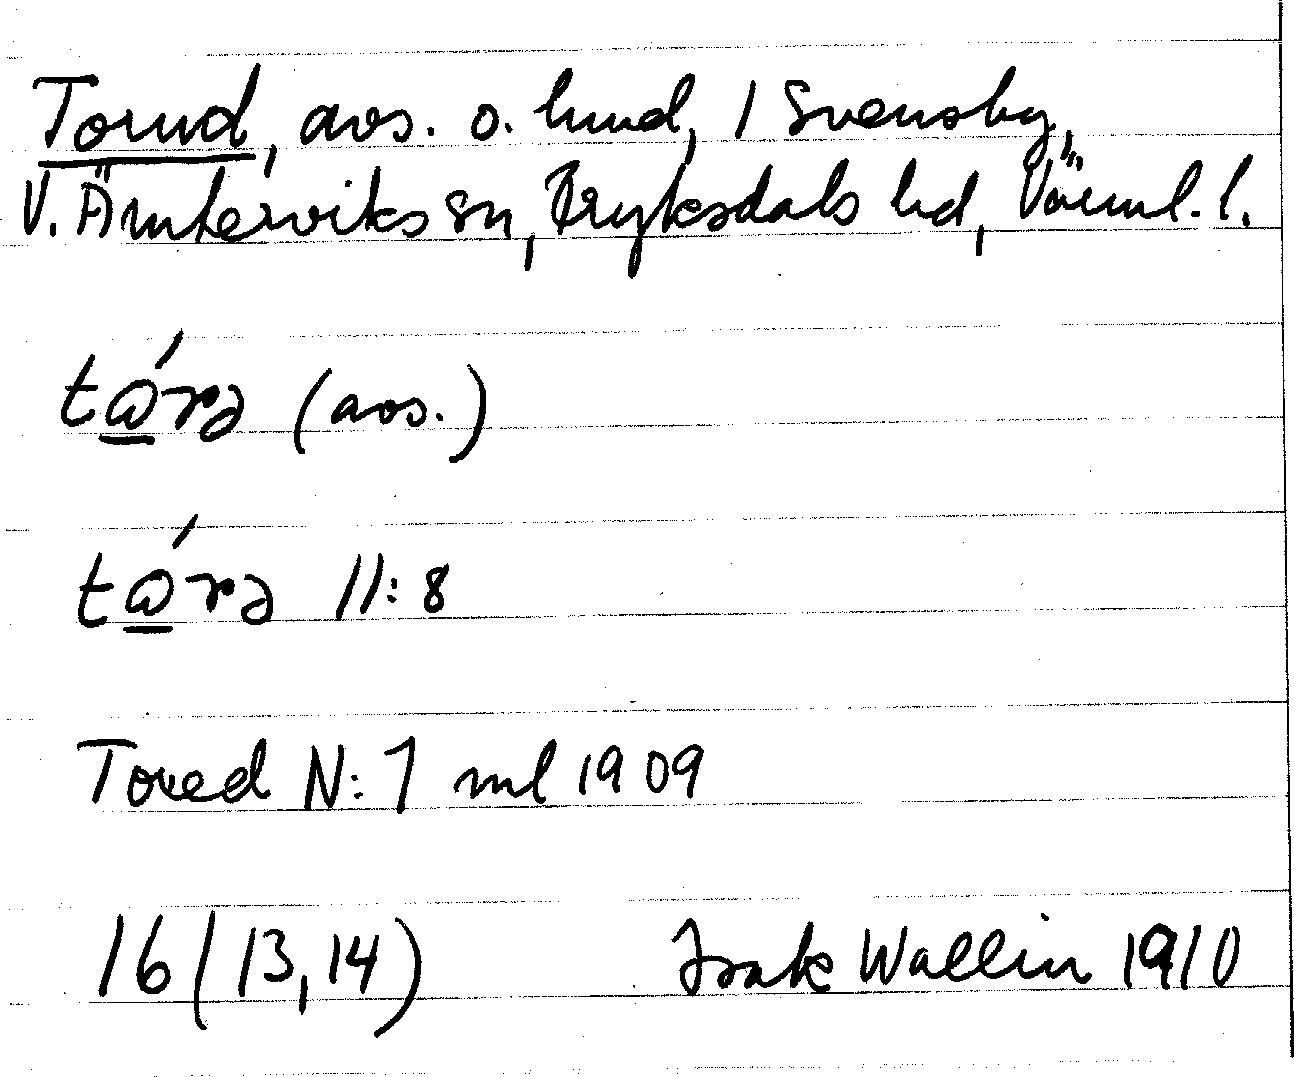 Torud, avs. o. hmd, 1 Svensby,
V. Ämterviks sn, Fryksdals hd, Värml. l.
tɷ́rə (avs.)
tɷ́rə 11:8
Tored N:1 ml 1909
16 (13,14) Isak Wallin 1910